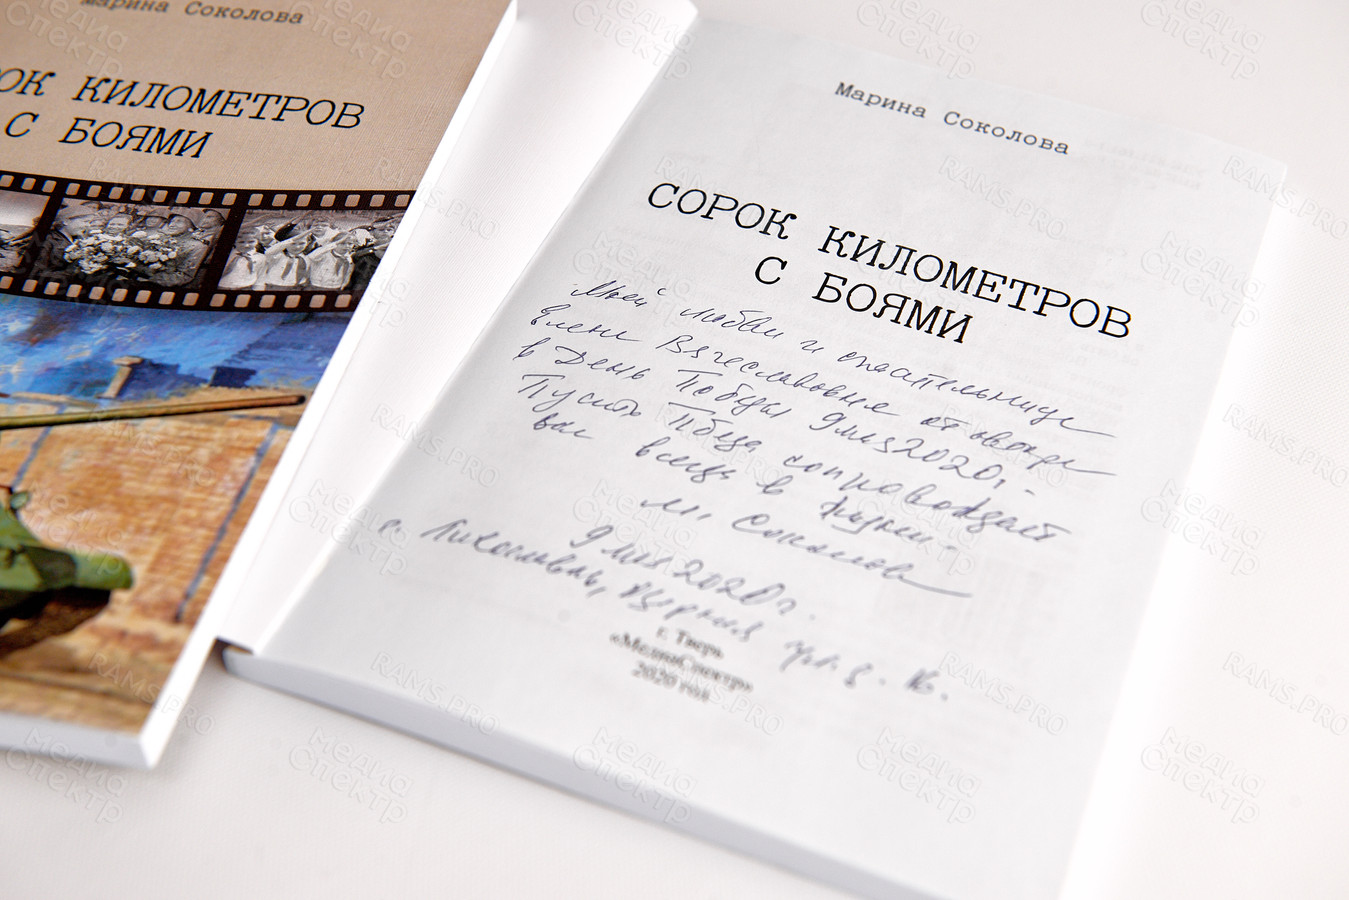 Марина Соколова
ОК КИЛОМЕТРОВ
С БОЯМИ
Марина Соколова
СОРОК КИЛОМЕТРОВ
С БОЯМИ
Моей любви и спасательнице
Елене Вячеславовне от автора
в День Победы 9 мая 2020г.
Пусть Победа сопровождает
вас всегда в жизни.
М. Соколова
9 мая 2020 г.
с.
г. Тверь
«МедиаСпектр»
2020 год
Медиа Спектр
RAMS.PRO